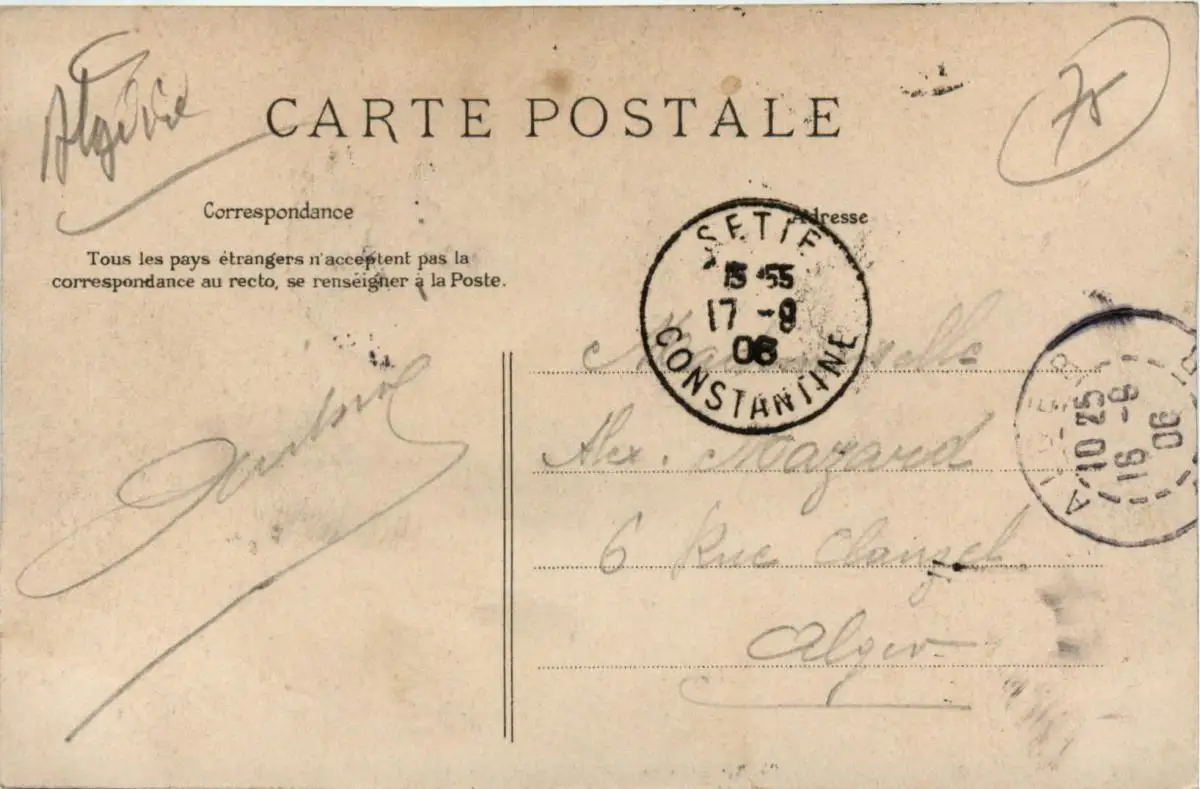 Algérie
CARTE POSTALE
75
Correspondance
Adresse
Tous les pays étrangers n'acceptent pas la
correspondance au recto, se renseigner à la Poste.
SETIF
15 55
17 -9
06
CONSTANTINE
Mademoiselle
Alex. Mazard
6 Rue Clauzel
Alger
10 25
06